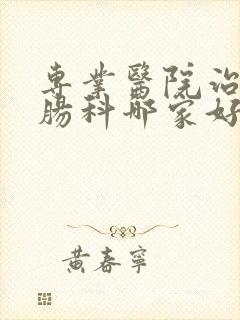 專業醫院治
腸科哪家好
黃春寧